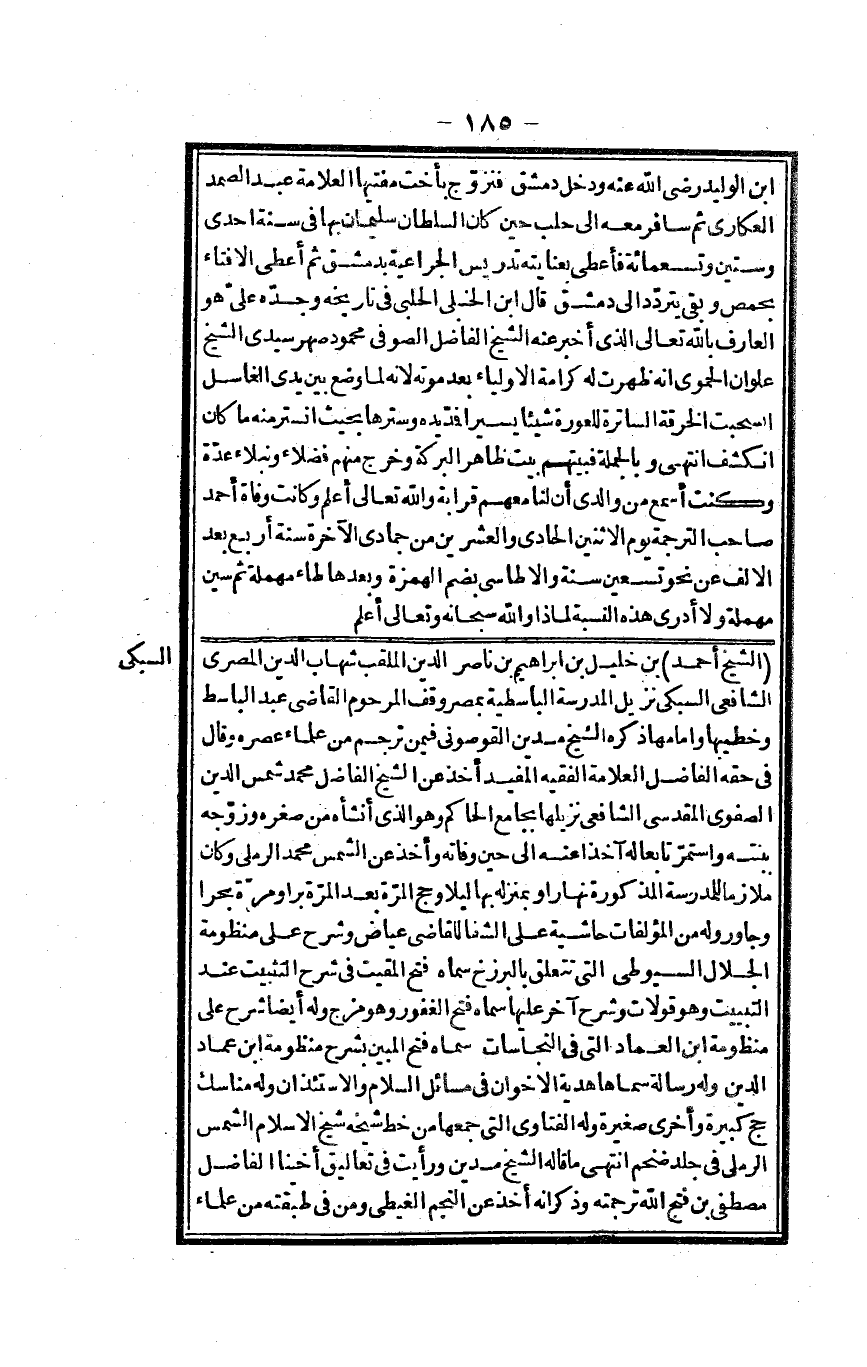 - ١٨٥ -
ابن الوليد رضى الله عنه ودخل دمشق فتزوّج بأخت مفتيها العلامة عبد الصمد
العكارى ثم سافر معه الى حلب حين كان السلطان سليمان بها فى سنة احدى
وستين وتسعمائة فأعطى بعنايته تدريس الجراعية بدمشق ثم أعطى الافتاء
بحمص و بقى يتردّد الى دمشق قال ابن الحنبلى الحلبى فى تاريخه وجدّه علىّ هو
العارف بالله تعالى الذى أخبر عنه الشيخ الفاضل الصوفى محمود صهر سيدى الشيخ
علوان الحموى انه ظهرت له كرامة الاولياء بعد موته لانه لما وضع بين يدى الغاسل
انسحبت الخرقة الساترة للعورة شيئا يسيرا فمدّ يده وسترها بحيث انستر منه ما كان
انكشف انتهى و بالجملة فبيتهم بيت ظاهر البركة وخرج منهم فضلاء ونبلاء عدّة
وكنت أسمع من والدى أن لنا معهم قرابة والله تعالى أعلم وكانت وفاة أحمد
صاحب الترجمة يوم الاثنين الحادى والعشرين من جمادى الآخرة سنة أربع بعد
الالف عن نحو تسعين سنة والاطاسى بضم الهمزة وبعدها طاء مهملة ثم سين
مهملة ولا أدرى هذه النسبة لماذا والله سبحانه وتعالى أعلم
السبكى
(الشيخ أحمد) بن خليل بن ابراهيم بن ناصر الدين الملقب شهاب الدين المصرى
الشافعى السبكى نزيل المدرسة الباسطية بمصر وقف المرحوم القاضى عبد الباسط
وخطيبها وامامها ذكره الشيخ مدين القوصونى فيمن ترجم من علماء عصره وقال
فى حقه الفاضل العلامة الفقيه المفيد أخذ عن الشيخ الفاضل محمد شمس الدين
الصفوى المقدسى الشافعى نزيلها بجامع الحاكم وهو الذى أنشأه من صغره وزوّجه
بنته واستمرّ تابعا له آخذا عنه الى حين وفاته وأخذ عن الشمس محمد الرملى وكان
ملازما للمدرسة المذكورة نهارا و بمنزله بها ليلا وحج المرّة بعد المرّة برا ومرّة بحرا
وجاور وله من المؤلفات حاشية على الشفا للقاضى عياض وشرح على منظومة
الجلال السيوطى التى تتعلق بالبرزخ سماه فتح المقيت فى شرح التثبيت عند
التبييت وهو قولات وشرح آخر عليها سماه فتح الغفور وهو مزج وله أيضا شرح على
منظومة ابن العماد التى فى النجاسات سماه فتح المبين بشرح منظومة ابن عماد
الدين وله رسالة سماها هدية الاخوان فى مسائل السلام والاستئذان وله مناسك
حج كبيرة وأخرى صغيرة وله الفتاوى التى جمعها من خط شيخه شيخ الاسلام الشمس
الرملى فى جلد ضخم انتهى ما قاله الشيخ مدين ورأيت فى تعاليق أخينا الفاضل
مصطفى بن فتح الله ترجمته وذكر انه أخذ عن النجم الغيطى ومن فى طبقته من علماء